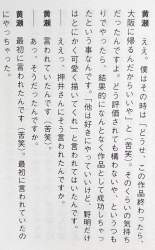 黄瀬 ええ。僕はその時は「どうせ、この作品終わったら
大阪に帰るんだからいいや」と(苦笑)。そのくらいの気持ち
だったんですよ。どう評価されても構わないや、といいつも
りでやったら、結果的になんとなく作品として成功しちゃっ
たという事なんです。「他は好きにやっていいけど、野明だけ
はとにかく可愛く描いてくれ」と言われてはいたんです。
── ええっ、押井さんにそう言われたんですか。
黄瀬 言われていたんです(苦笑)。
── あっ、そうだったんですか。
黄瀬 最初に言われたんです(苦笑)。最初に言っていたの
にやっちゃった。